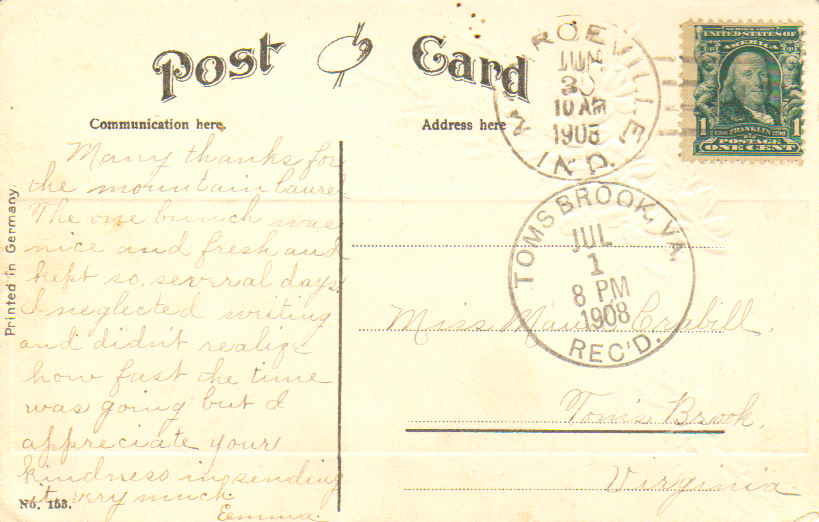 Post Card
Communication here.
Address here
M ROEVILLE
JUN
30
10 AM
1908
IND.
SERIES 1902
UNITED STATES OF
AMERICA
1 FRANKLIN 1
POSTAGE
ONE CENT
TOMS BROOK, VA.
JUL
1
8 PM
1908
REC'D.
Many thanks for
the mountain laurel
The one bunch was
nice and fresh and
kept so, several days
I neglected writing
and didn't realize
how fast the time
was going but I
appreciate your
kindness in sending
it very much
Emma.
Miss Maud Crabill.
Tom's Brook,
Virginia
Printed in Germany.
No. 153.